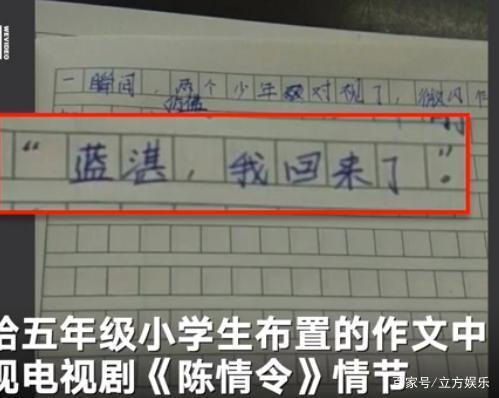 WEVIDEO
一瞬间，两个少年对视了，微风
“蓝湛，我回来了”。
给五年级小学生布置的作文中
现电视剧《陈情令》情节
百家号/立方娱乐